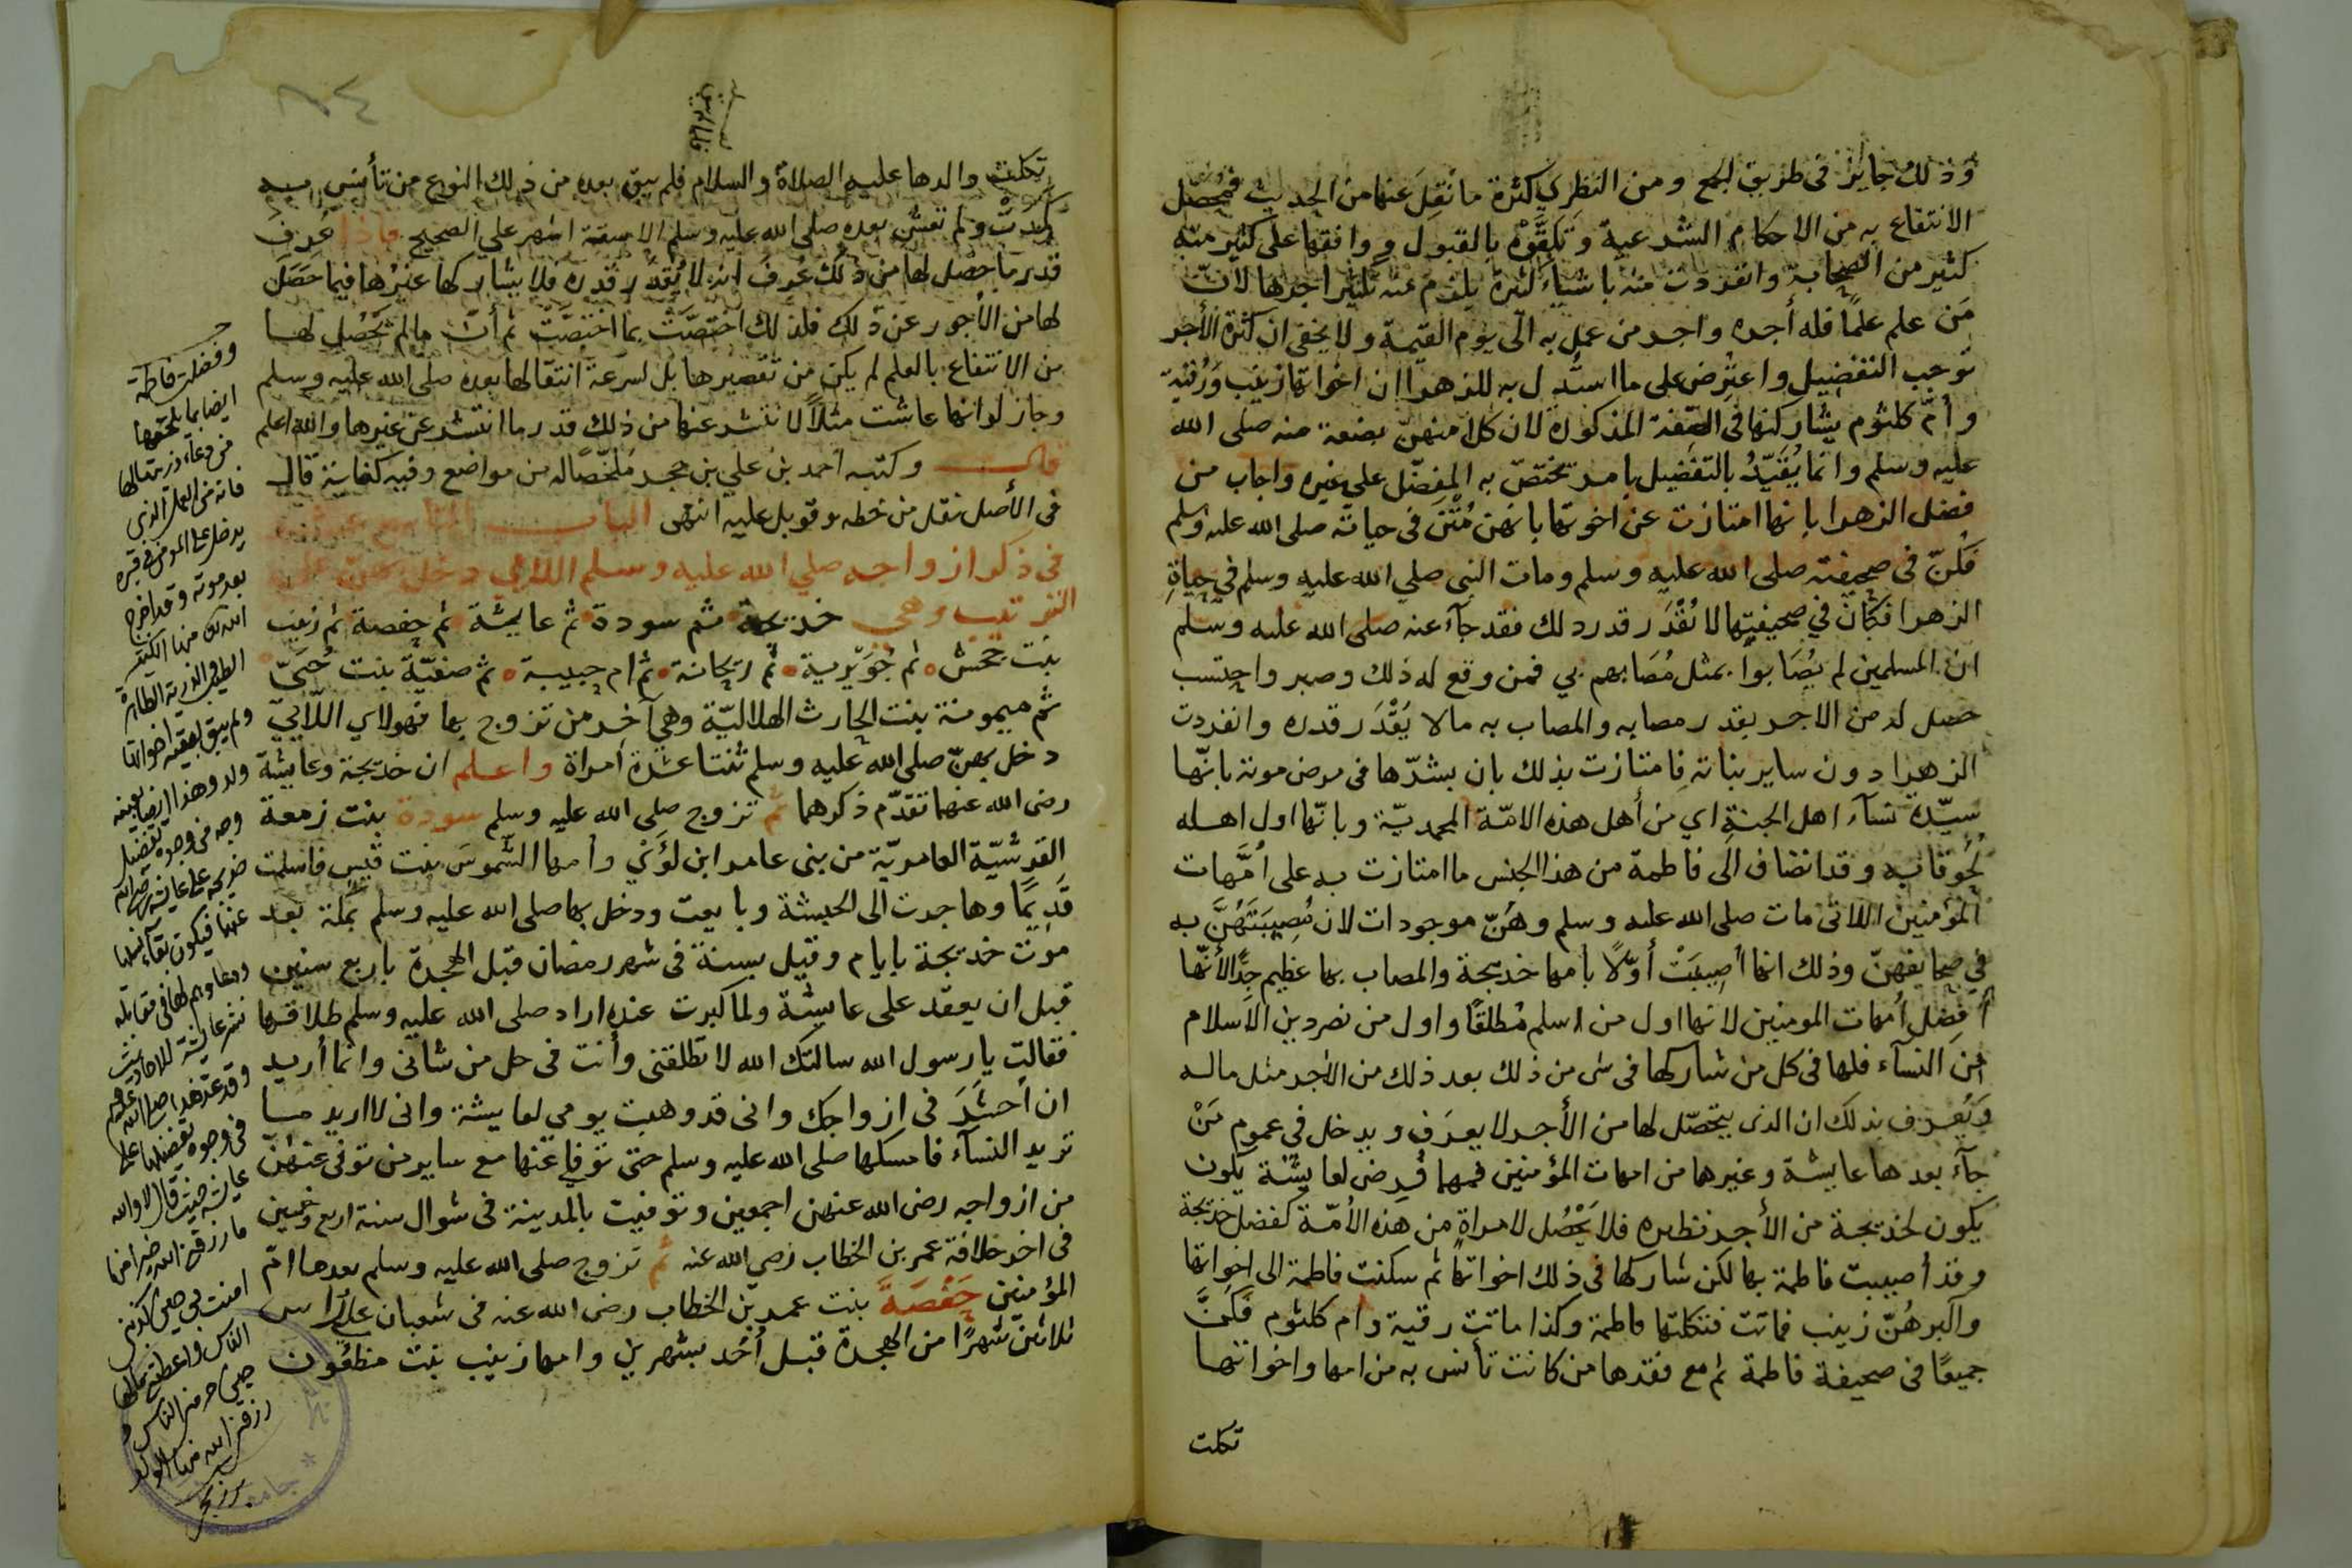 وذلك جايز فى طريق الجمع ومن النظر كثرة ما نقل عنها من الحديث فيحصل
الانتفاع به من الاحكام الشرعية وتلقوه بالقبول ووافقها على كثير منه
كثير من الصحابة وانفردت منه باشياء كثيرة يلزم عنه تكثير اجرها لان
من علم علمًا فله أجره واجر من عمل به الى يوم القيمة ولا يخفى ان كثرة الأجر
توجب التفضيل واعترض على ما استدل به للزهرا ان اخواتها زينب ورقية
وأم كلثوم يشاركنها فى الصفة المذكورة لان كلا منهن بضعة منه صلى الله
عليه وسلم وانما يُقيّد بالتفضيل بامر يختصّ به المفضّل على غيره واجاب من
فضل الزهرا بانها امتازت عن اخوتها بانهن مُتن فى حياته صلى الله عليه وسلم
فكنّ فى صحيفته صلى الله عليه وسلم ومات النبى صلي الله عليه وسلم في حياة
الزهرا فكان في صحيفتها لا يُقدر قدر ذلك فقد جآء عنه صلى الله عليه وسلم
ان المسلمين لم يُصابوا بمثل مُصابهم بي فمن وقع له ذلك وصبر واحتسب
حصل له من الاجر بقدر مصابه والمصاب به مالا يقدر قدره وانفردت
الزهرا دون ساير بناته فامتازت بذلك بان بشرّها فى مرض موته بانّها
سيّدة نسآء اهل الجنة اي من أهل هذه الامّة المحمديّة وبانّها اول اهله
لحوقا به وقد انضاف الى فاطمة من هذا الجنس ما امتازت به على أمّهات
المؤمنين اللاتى مات صلى الله عليه وسلم وهُنّ موجودات لان مُصيبتَهُنّ به
في صحايفهنّ وذلك انها أصيبت أوّلاً بأمها خديجة والمصاب بها عظيم جدًّا لأنّها
أفضل أمهات المومنين لانها اول من اسلم مطلقًا واول من نصر دين الاسلام
من النسآء فلها فى كل من شاركها فى شى من ذلك بعد ذلك من الأجر مثل ماله
ويُعرف بذلك ان الذى يتحصّل لها من الأجر لا يعرف ويدخل فى عموم من
جآء بعدها عايشة وغيرها من امهات المؤمنين فمهما فُرض لعايشة يكون
يكون لخديجة من الأجر نظيره فلا يحصُل لامراة من هذه الأمّة كفضل خديجة
وقد أصيبت فاطمة بها لكن شاركها فى ذلك اخواتها ثم سكنت فاطمة الى اخواتها
واكبرهُنّ زينب فماتت فثكلتها فاطمة وكذا ماتت رقية وام كلثوم فكنّ
جميعًا فى صحيفة فاطمة ثم مع فقدها من كانت تأنس به من امها واخواتها
ثكلت
ثكلت والدها عليه الصلاة والسلام فلم يبق بعده من ذلك النوع من تأنس به
ولم تعش بعده صلى الله عليه وسلم الا ستة اشهر علي الصحيح فاذا عُرف
قدر ما حصل لها من ذلك عُرف انه لا يُقدّر قدره فلا يشاركها غيرُها فيما حصَل
لها من الأجور عن ذلك فلذلك اختصّت بما اختصّت ثم أنّ ما لم يحصُل لها
من الانتفاع بالعلم لم يكن من تقصيرها بل لسرعة انتقالها بعده صلى الله عليه وسلم
وجاز لو انها عاشت مثلاً لانتشر عنها من ذلك قدر ما انتشر عن غيرها والله اعلم
قال وكتبه احمد بن علي بن حجر ملخّصًا له من مواضع وفيه كفاية قال
فى الأصل نقل من خطه وقوبل عليه انتهى الباب التاسع عشر
فى ذكر ازواجه صلي الله عليه وسلم اللاتي دخل بهن على
الترتيب وهي خديجة ثم سودة ثم عايشة ثم حفصة ثم زينب
بنت جحش ثم جُوَيرية ثم ريحانة ثم ام حبيبة ثم صفيّة بنت حُييّ
ثم ميمونة بنت الحارث الهلاليّة وهي آخر من تزوج بها فهولاي اللآتي
دخل بهنّ صلى الله عليه وسلم ثنتا عشرة امراة واعلم ان خديجة وعايشة
رضى الله عنهما تقدّم ذكرهما ثم تزوج صلى الله عليه وسلم سودة بنت زمعة
القرشيّة العامريّة من بنى عامر ابن لؤي وأمها الشَّموس بنت قيس فاسلمت
قديمًا وهاجرت الى الحبشة وبايعت ودخل بها صلى الله عليه وسلم بمكة بعد
موت خديجة بايام وقيل بسنة فى شهر رمضان قبل الهجرة باربع سنين
قبل ان يعقد على عايشة ولما كبرت عنده اراد صلى الله عليه وسلم طلاقها
فقالت يا رسول الله سالتك الله لا تطلقنى وأنت فى حل من شانى وانما أريد
ان احشر فى ازواجك وانى قد وهبت يومي لعايشة وانى لا اريد ما
تريد النسآء فامسكها صلى الله عليه وسلم حتى توفي عنها مع ساير من توفى عنهن
من ازواجه رضى الله عنهن اجمعين وتوفيت بالمدينة فى شوال سنة اربع وخمسين
فى اخر خلافة عمر بن الخطاب رضى الله عنه ثم تزوج صلى الله عليه وسلم بعدها امّ
المؤمنين حَفْصَة بنت عمر بن الخطاب رضى الله عنه فى شعبان على راس
ثلاثين شهرًا من الهجرة قبل أحُد بشهرين وامها زينب بنت مظعون
وفضلت فاطمة
ايضا بما يلحقها
من دعاء ذريتها لها
فانه من العمل الذى
يدخل على المومن في قبره
بعد موته وقد اخرج
الله منها الكثير
الطيب والذرية الطاهرة
ولم يبق لبقية اخواتها
ولد وهذا ايضا بعينه
وجه من وجوه تفضيل
خديجة على عايشة رضى الله
عنها فيكون بقاء نسلها
ودعاوهم لها في مقابلة
نشر عايشة للاحاديث
وقد عد هذا صلى الله عليه وسلم
في وجوه تفضيلها على
عايشة حيث قال لا والله
ما رزقنى الله خيرا منها
امنت بى حين كذبنى
الناس واعطتنى مالها
حين حرمنى الناس و
رزقنى الله منها الولد